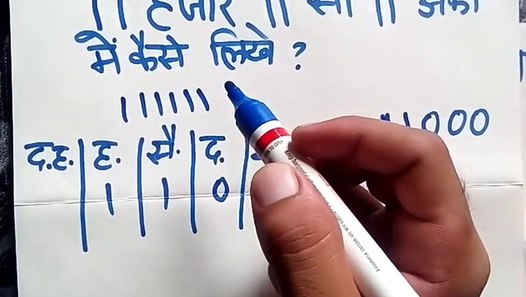 11 हजार 11 सौ 11 अंकों
में कैसे लिखे ?
111111
11000
द.ह. ह. सै. द.
1 1 0